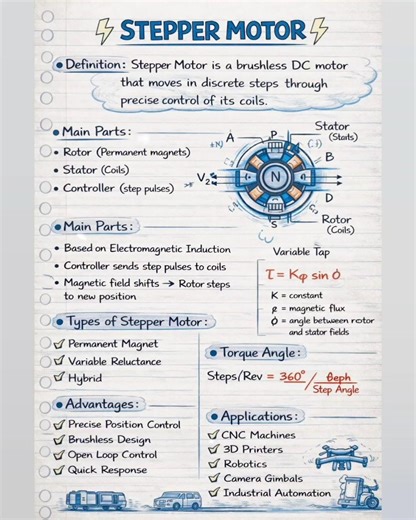 STEPPER MOTOR
Definition: Stepper Motor is a brushless DC motor
that moves in discrete steps through
precise control of its coils.
Main Parts:
Rotor (Permanent magnets)
Stator (Coils)
Controller (step pulses)
A
P
Stator
(Stats)
B
V₂
N
D
S
Rotor
(Coils)
Variable Tap
Main Parts:
Based on Electromagnetic Induction
Controller sends step pulses to coils
Magnetic field shifts → Rotor steps
to new position
τ = Kφ sin φ̇
K = constant
= magnetic flux
= angle between rotor
and stator fields
Types of Stepper Motor:
Permanent Magnet
Variable Reluctance
Hybrid
Torque Angle:
Steps/Rev = 360° / θeph
Step Angle
Advantages:
Precise Position Control
Brushless Design
Open Loop Control
Quick Response
Applications:
CNC Machines
3D Printers
Robotics
Camera Gimbals
Industrial Automation